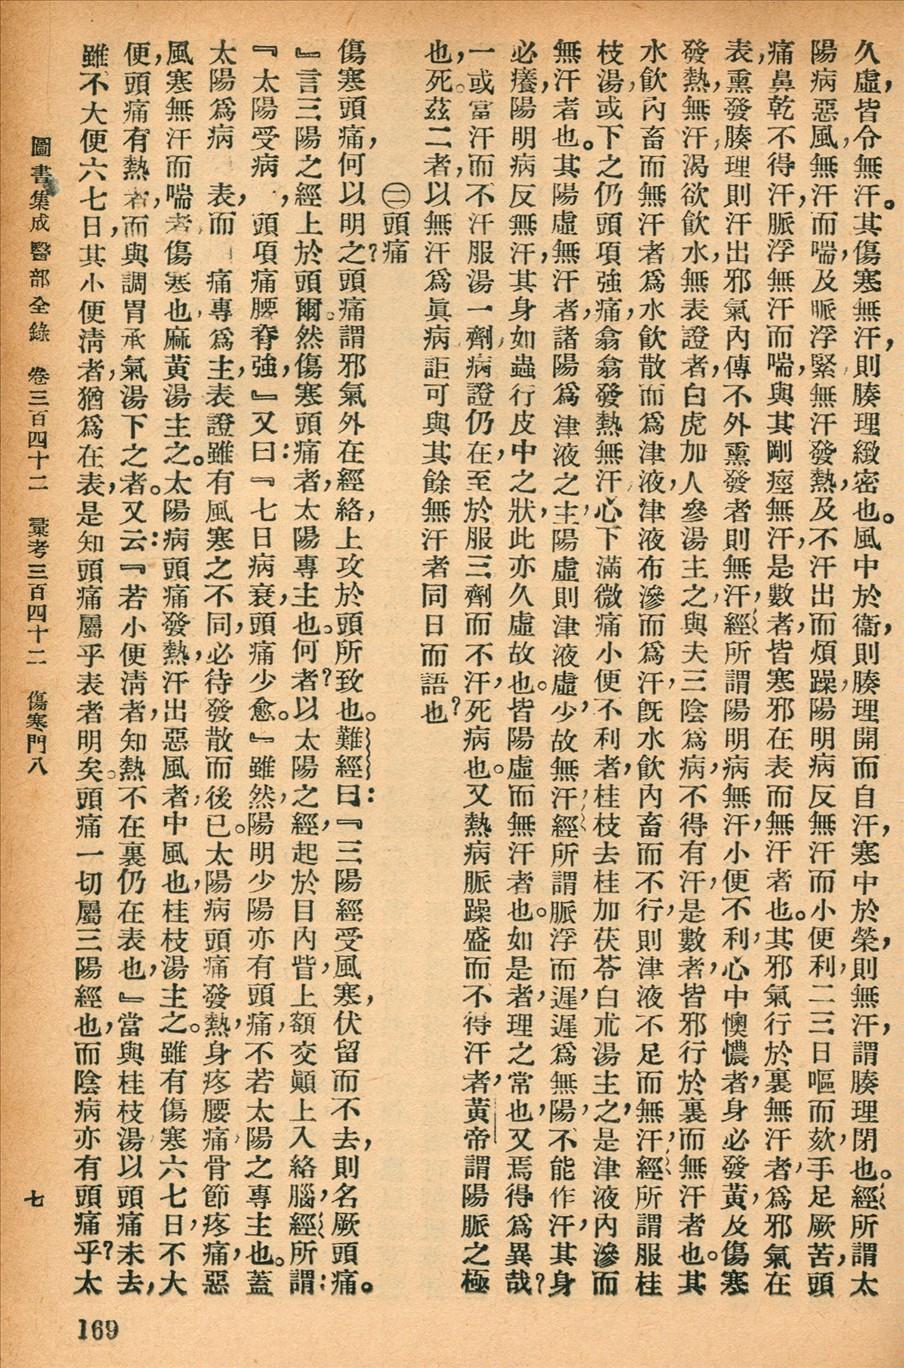 久虛，皆令無汗。其傷寒無汗，則腠理緻密也。風中於衞，則腠理開而自汗，寒中於榮，則無汗，謂腠理閉也。經所謂太
陽病惡風，無汗而喘，及脈浮緊，無汗發熱，及不汗出而煩躁，陽明病反無汗而小便利，二三日嘔而欬，手足厥苦，頭
痛鼻乾不得汗，脈浮無汗而喘，與其剛痙無汗，是數者，皆寒邪在表而無汗者也。其邪氣行於裏無汗者，爲邪氣在
表，熏發腠理則汗出，邪氣內傳，不外熏發者則無汗，經所謂陽明病無汗，小便不利，心中懊憹者，身必發黃，及傷寒
發熱，無汗，渴欲飲水，無表證者，白虎加人參湯主之，與夫三陰爲病，不得有汗，是數者，皆邪行於裏而無汗者也。其
水飲內畜而無汗者，爲水飲散而爲津液，津液布滲而爲汗，旣水飲內畜而不行，則津液不足而無汗，經所謂服桂
枝湯，或下之，仍頭項強痛，翕翕發熱無汗，心下滿微痛，小便不利者，桂枝去桂加茯苓白朮湯主之，是津液內滲而
無汗者也。其陽虛無汗者，諸陽爲津液之主，陽虛則津液虛少，故無汗，經所謂脈浮而遲，遲爲無陽，不能作汗，其身
必癢，陽明病反無汗，其身如蟲行皮中之狀，此亦久虛故也。皆陽虛而無汗者也。如是者，理之常也，又焉得爲異哉？
一或當汗而不汗，服湯一劑，病證仍在，至於服三劑而不汗，死病也。又熱病脈躁盛而不得汗者，黃帝謂陽脈之極
也，死。茲二者，以無汗爲眞病，詎可與其餘無汗者同日而語也？
㊁頭痛
傷寒頭痛，何以明之？頭痛謂邪氣外在經絡，上攻於頭所致也。難經曰：『三陽經受風寒，伏留而不去，則名厥頭痛。
』言三陽之經上於頭爾。然傷寒頭痛者，太陽專主也。何者？以太陽之經，起於目內眥，上額交巓上入絡腦，經所謂：
『太陽受病，頭項痛，腰脊強，』又曰：『七日病衰，頭痛少愈。』雖然，陽明少陽亦有頭痛，不若太陽之專主也。蓋
太陽爲病 表而 痛專爲主，表證雖有風寒之不同，必待發散而後已。太陽病頭痛發熱，身疼腰痛，骨節疼痛，惡
風寒無汗而喘者，傷寒也，麻黃湯主之。太陽病頭痛發熱，汗出惡風者，中風也，桂枝湯主之。雖有傷寒六七日，不大
便，頭痛有熱者，而與調胃承氣湯下之者。又云：『若小便淸者，知熱不在裏仍在表也，』當與桂枝湯，以頭痛未去，
雖不大便六七日，其小便淸者，猶爲在表，是知頭痛屬乎表者明矣。頭痛一切屬三陽經也，而陰病亦有頭痛乎？太
圖書集成醫部全錄 卷三百四十二 彙考三百四十二 傷寒門八 七
169